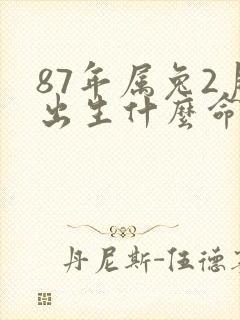 87年属兔2月
出生什麽命
丹尼斯-伍德